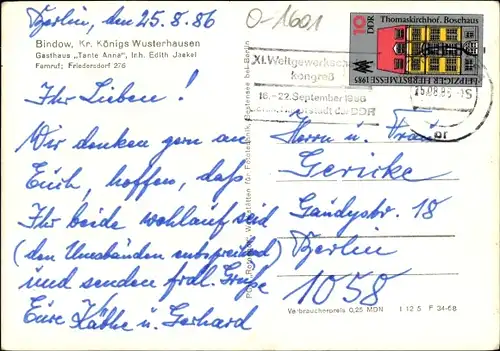 Berlin, den 25.8.86
O-1601
Bindow, Kr. Königs Wusterhausen
Gasthaus „Tante Anna", Inh. Edith Jaekel
Fernruf: Friedersdorf 276
Ihr Lieben!
Wir denken gern an
Euch, hoffen, daß
Ihr beide wohlauf seid
(den Umständen entsprechend)
und senden frdl. Grüße
Eure Käthe u. Gerhard
10 DDR
Thomaskirchhof. Bosehaus
LEIPZIGER HERBSTMESSE 1985
XI. Weltgewerkschafts
kongreß
16.-22. September 1986
Hauptstadt der DDR
25.08.86
Herrn u. Frau
Gericke
Gaudystr. 18
Berlin
1058
Verbraucherpreis 0,25 MDN I 12 5 F 34-68